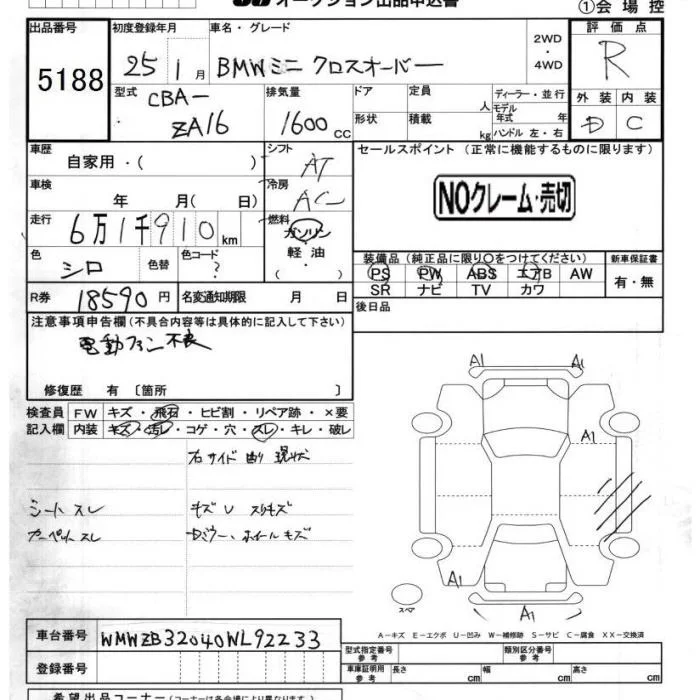 オークション出品申込書
①会場控
出品番号 初度登録年月 車名・グレード 評価点
5188 25 1月 BMWミニ クロスオーバー 2WD ・ 4WD R
型式 排気量 ドア 定員 人 ディーラー・並行 外装 内装
CBA- モデル年式 年 D C
ZA16 1600cc 形状 積載 kg ハンドル 左・右
車歴 自家用・( ) シフト AT セールスポイント (正常に機能するものに限ります)
車検 年 月( 日) 冷房 AC NOクレーム・売切
走行 6万1千910km 燃料 ガソリン
色 シロ 色替 色コード ? 軽油 ・ ( )
装備品 (純正品に限り○をつけてください) 新車保証書
PS PW ABS エアB AW 有・無
SR ナビ TV カワ
R券 18590円 名変通知期限 月 日 後日品
注意事項申告欄(不具合内容等は具体的に記入して下さい)
電動ファン不良
修復歴 有 〔箇所 〕
検査員 FW キズ・飛石・ヒビ割・リペア跡・×要
記入欄 内装 キズ・汚レ・コゲ・穴・スレ・キレ・破レ
右サイド 曲り 現状
シート スレ キズ U スリキズ
カーペット スレ ホイール キズ
A1 A1
A1
A1
A1
スペア
A-キズ E-エクボ U-凹み W-補修跡 S-サビ C-腐食 XX-交換済
車台番号 WMWZB32040WL92233
型式指定番号 参考 類別区分番号 参考
登録番号 車庫証明用 参考 長さ cm 幅 cm 高さ cm
希望出品コーナー(コーナーは各会場により異なります。)